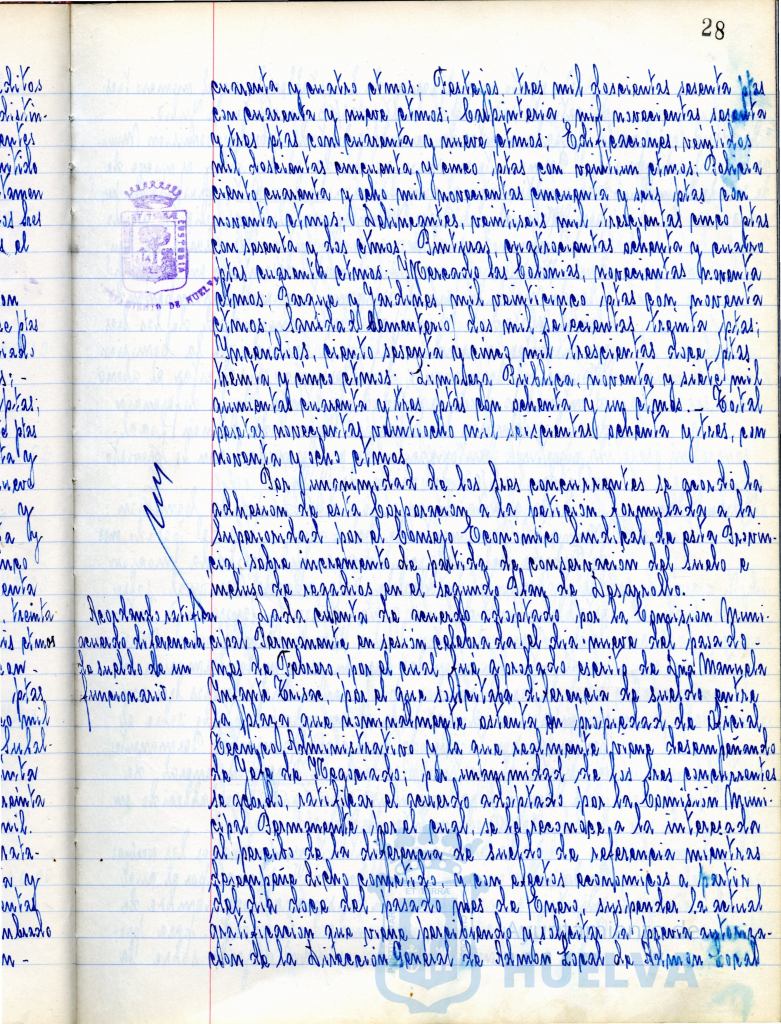 28
cuarenta y cuatro ctmos; Festejos, tres mil doscientas sesenta ptas
con cuarenta y nueve ctmos; Carpinteria, mil novecientas sesenta
y tres ptas con cuarenta y nueve ctmos; Edificaciones, veintidos
mil doscientas cincuenta y cinco ptas con veintiun ctmos; Policia
ciento cuarenta y ocho mil novecientas cincuenta y seis ptas con
noventa ctmos; Delineantes, veintiseis mil trescientas cinco ptas
con sesenta y dos ctmos; Pinturas, cuatrocientas ochenta y cuatro
ptas cuarenta ctmos; Mercado las Colonias, novecientas noventa
ctmos; Parque y Jardines mil veinticinco ptas con noventa
ctmos; Sanidad (Cementerio) dos mil setecientas treinta ptas;
Incendios, ciento sesenta y cinco mil trescientas doce ptas
treinta y cinco ctmos; Limpieza Pública, noventa y siete mil
quinientas cuarenta y tres ptas con ochenta y un ctmos.- Total
pesetas novecientas veintiocho mil seiscientas ochenta y tres, con
noventa y ocho ctmos.
Por unanimidad de los Sres concurrentes se acordó la
adhesion de esta Corporacion a la petición formulada a la
Superioridad por el Consejo Economico Sindical de esta Provin-
cia, sobre incremento de partida de conservacion del Suelo e
incluso de regadios en el segundo Plan de Desarrollo.
Acordando ratificar
acuerdo diferencia
de sueldo de un
funcionario.
Dada cuenta de acuerdo adoptado por la Comisión Muni-
cipal Permanente en sesión celebrada el dia nueve del pasado
mes de Febrero, por el cual fue aprobado escrito de Dña Manuela
Infante, por el que solicitaba diferencia de sueldo entre
la plaza que nominalmente ostenta en propiedad de Oficial
Tecnico Administrativo y la que realmente viene desempeñando
de Jefe de Negociado; por unanimidad de los Sres concurrentes
se acordó, ratificar el acuerdo adoptado por la Comisión Muni-
cipal Permanente, por el cual, se le reconoce a la interesada
al percibo de la diferencia de sueldo de referencia mientras
desempeñe dicho cometido y con efectos economicos a partir
del dia doce del pasado mes de Enero, suspender la actual
gratificacion que viene percibiendo y solicitar la previa autoriza-
ción de la Dirección General de Admón Local de Admón Local
HUELVA